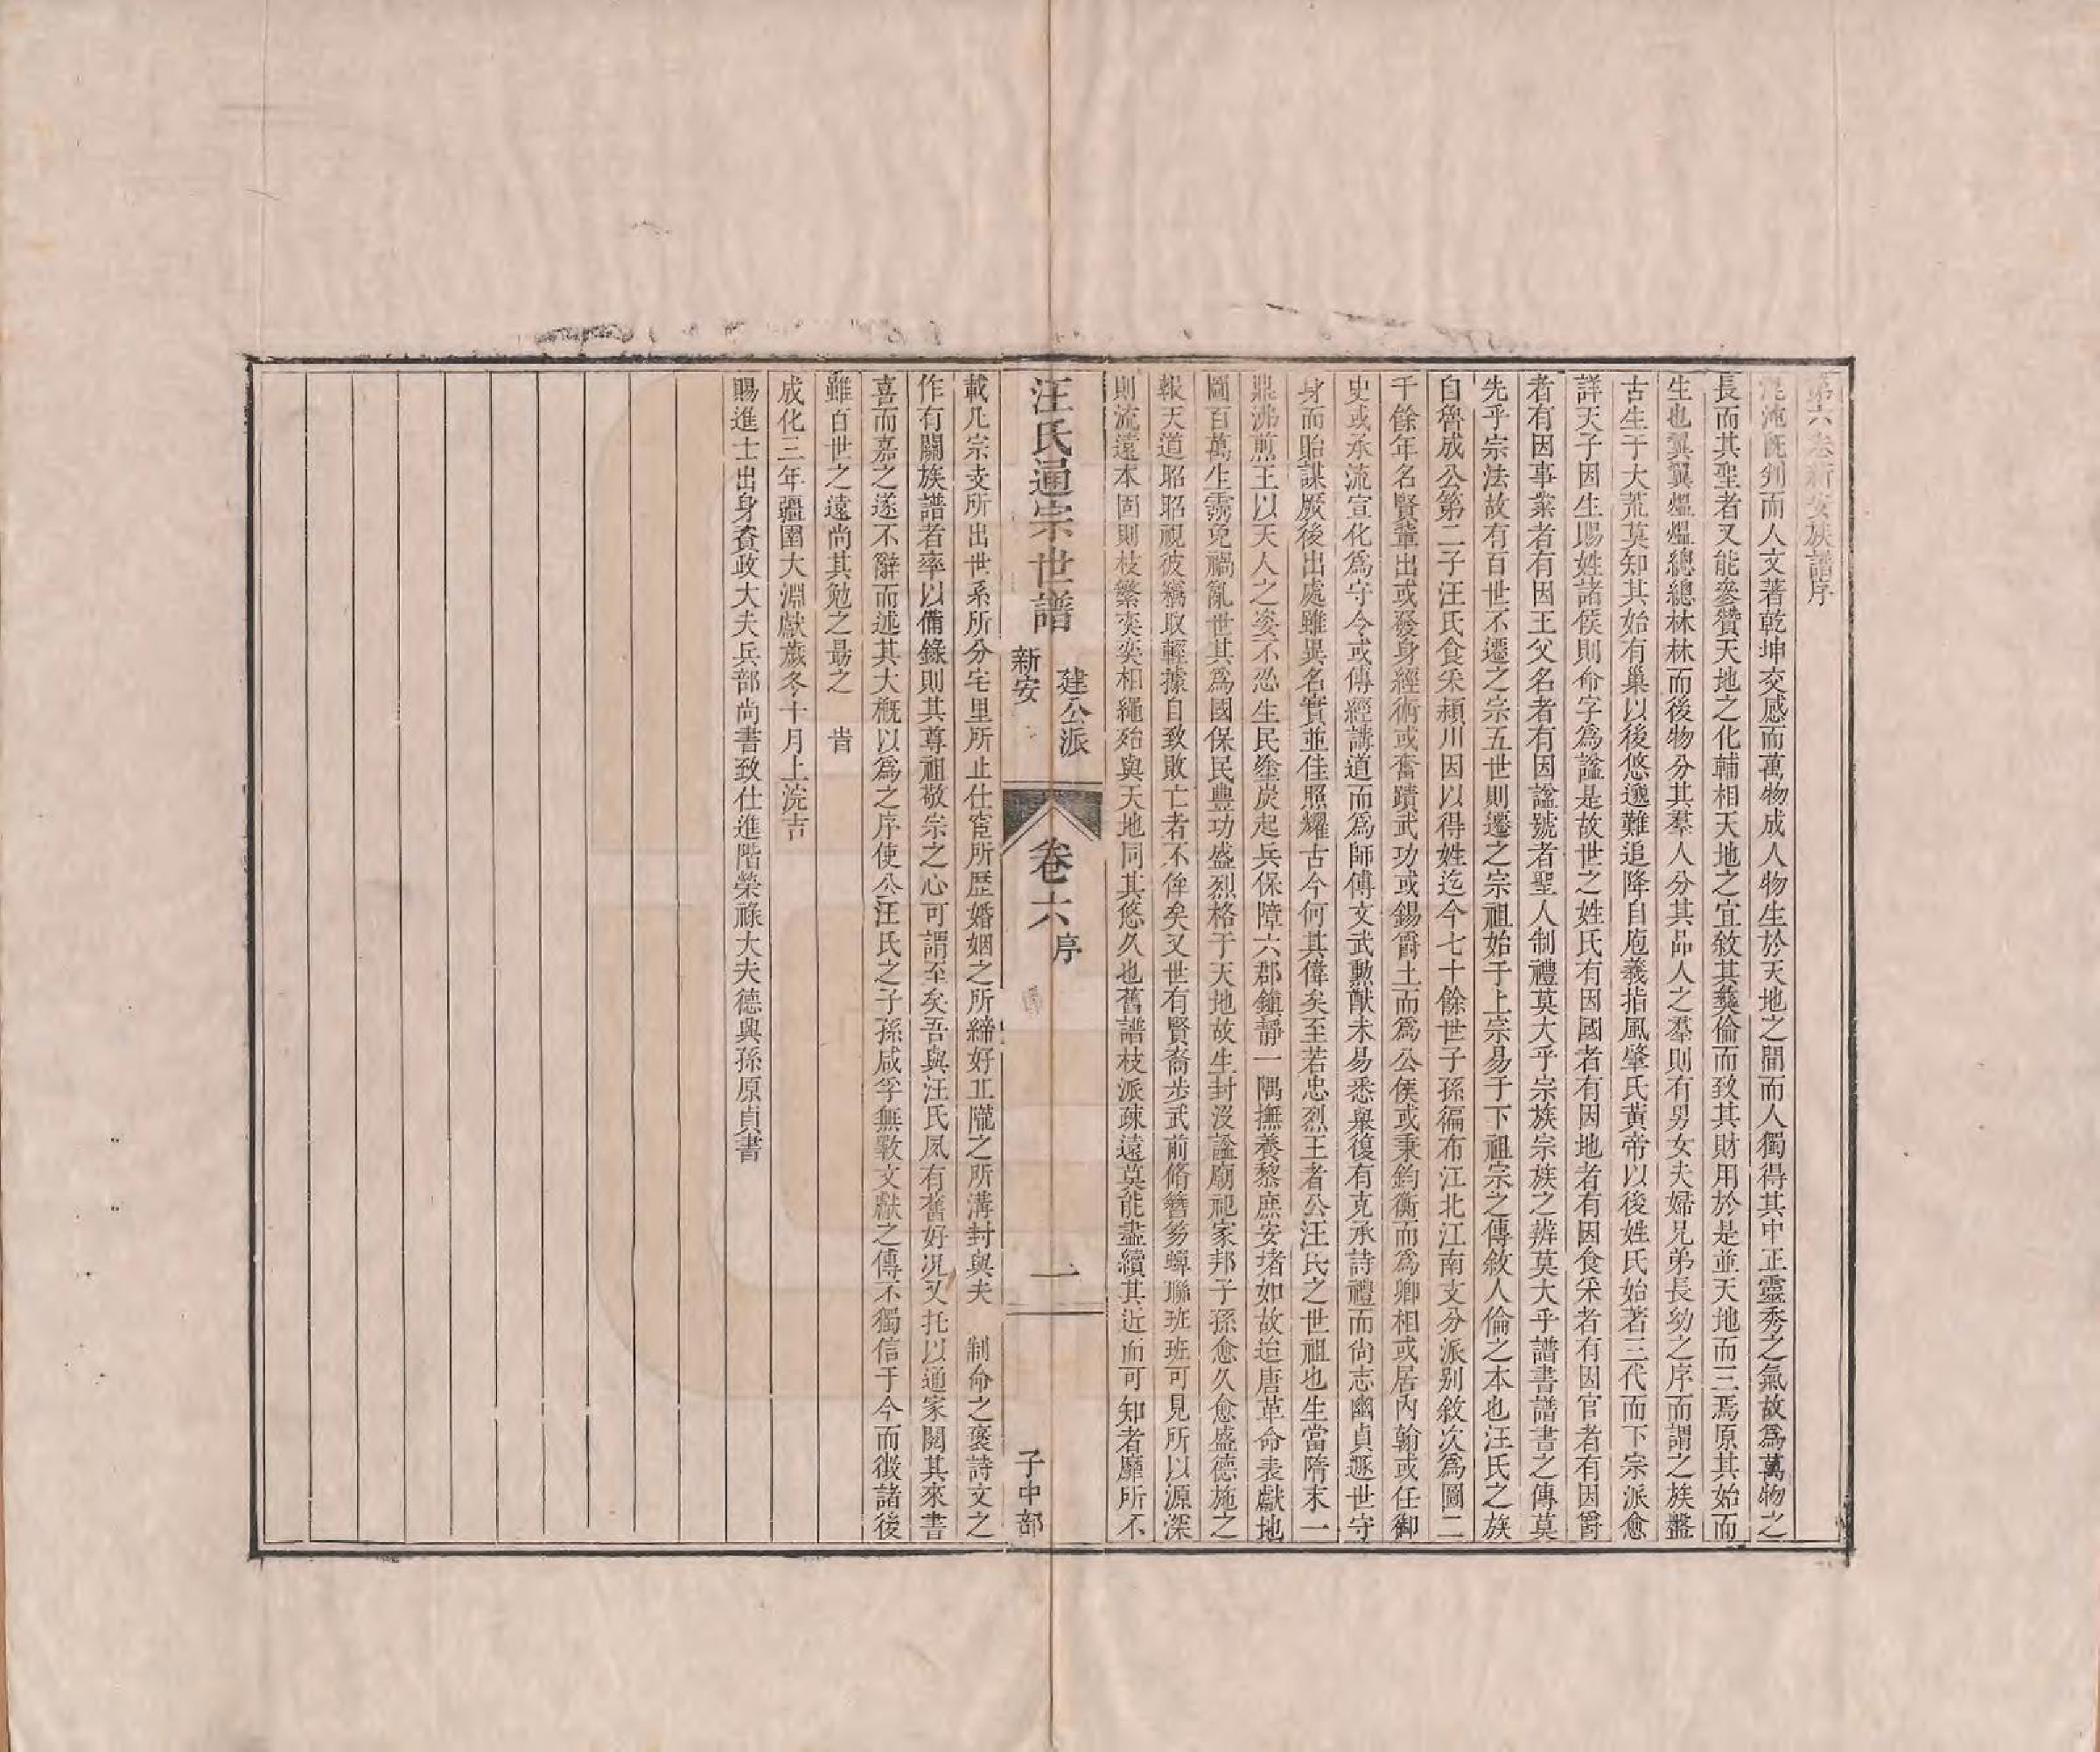 第六卷新安族譜序
混沌旣判而人文著乾坤交感而萬物成人物生於天地之間而人獨得其中正靈秀之氣故爲萬物之
長而其聖者又能參贊天地之化輔相天地之宜敘其彝倫而致其財用於是並天地而三焉原其始而
生也翼翼熅熅總總林林而後物分其羣人分其品人之羣則有男女夫婦兄弟長幼之序而謂之族盤
古生于大荒莫知其始有巢以後悠邈難追降自庖羲指風肇氏黃帝以後姓氏始著三代而下宗派愈
詳天子因生賜姓諸侯則命字爲謚是故世之姓氏有因國者有因地者有因食采者有因官者有因爵
者有因事業者有因王父名者有因謚號者聖人制禮莫大乎宗族宗族之辨莫大乎譜書譜書之傳莫
先乎宗法故有百世不遷之宗五世則遷之宗祖始于上宗易于下祖宗之傳敘人倫之本也汪氏之族
自魯成公第二子汪氏食采潁川因以得姓迄今七十餘世子孫徧布江北江南支分派别敘次爲圖二
千餘年名賢輩出或發身經術或奮蹟武功或錫爵土而爲公侯或秉鈞衡而爲卿相或居內翰或任御
史或承流宣化爲守令或傳經講道而爲師傅文武勳猷未易悉舉復有克承詩禮而尚志幽貞遯世守
身而貽謀厥後出處雖異名實並佳照耀古今何其偉矣至若忠烈王者公汪氏之世祖也生當隋末一
鼎沸煎王以天人之姿不忍生民塗炭起兵保障六郡鎮靜一隅撫養黎庶安堵如故迨唐革命表獻地
圖百萬生霛免禍亂世其爲國保民豊功盛烈格于天地故生封沒謚廟祀家邦子孫愈久愈盛德施之
報天道昭昭視彼竊取輕據自致敗亡者不侔矣又世有賢裔步武前脩簪笏蟬聯班班可見所以源深
則流遠本固則枝繁奕奕相繩殆與天地同其悠久也舊譜枝派疎遠莫能盡續其近而可知者靡所不
汪氏通宗世譜 建公派 新安 卷六 序 一 子中部
載凡宗支所出世系所分宅里所止仕宦所歴婚姻之所締好丘隴之所溝封與夫 制命之褒詩文之
作有關族譜者率以備錄則其尊祖敬宗之心可謂至矣吾與汪氏夙有舊好况又托以通家閱其來書
喜而嘉之遂不辭而述其大槪以爲之序使公汪氏之子孫咸孚無斁文獻之傳不獨信于今而徵諸後
雖百世之遠尚其勉之勗之 旹
成化三年疆圉大淵獻歲冬十月上浣吉
賜進士出身資政大夫兵部尚書致仕進階榮祿大夫德興孫原貞書